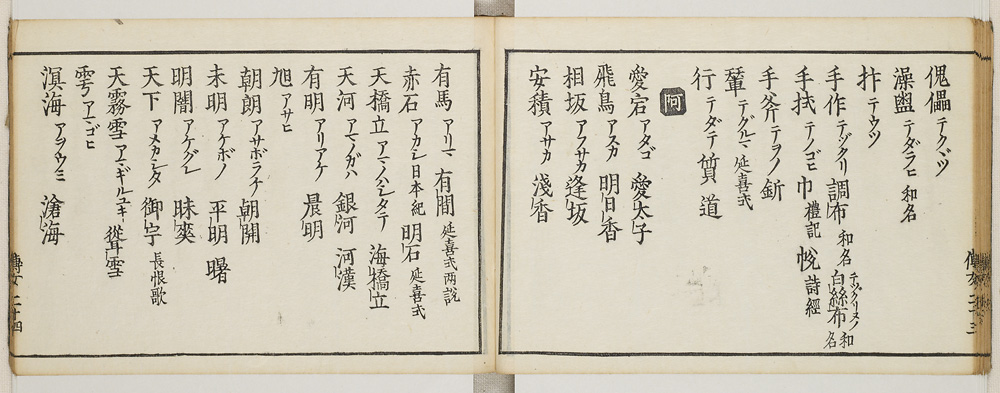 傀儡 テクヾツ
澡盥 テダラヒ 和名
抃 テウツ
手作 テヅクリ 調布 和名 白絲布 テヅクリヌノ 和名
手拭 テノゴヒ 巾 禮記 帨 詩經
手斧 テヲノ 釿
輦 テグルマ 延喜式
行 テダテ 質 道
阿
愛宕 アタゴ 愛太子
飛鳥 アスカ 明日香
相坂 アフサカ 逢坂
安積 アサカ 淺香
有馬 アリマ 有間 延喜式两説
赤石 アカシ 日本紀 明石 延喜式
天橋立 アマノハシタテ 海橋立
天河 アマノガハ 銀河 河漢
有明 アリアケ 晨明
旭 アサヒ
朝朗 アサボラケ 朝開
未明 アケボノ 平明 曙
明闇 アケグレ 昧爽
天下 アメカシタ 御宇 長恨歌
天霧雪 アマギルユキ 聳雪
雩 アマゴヒ
溟海 アヲウミ 滄海
二十四